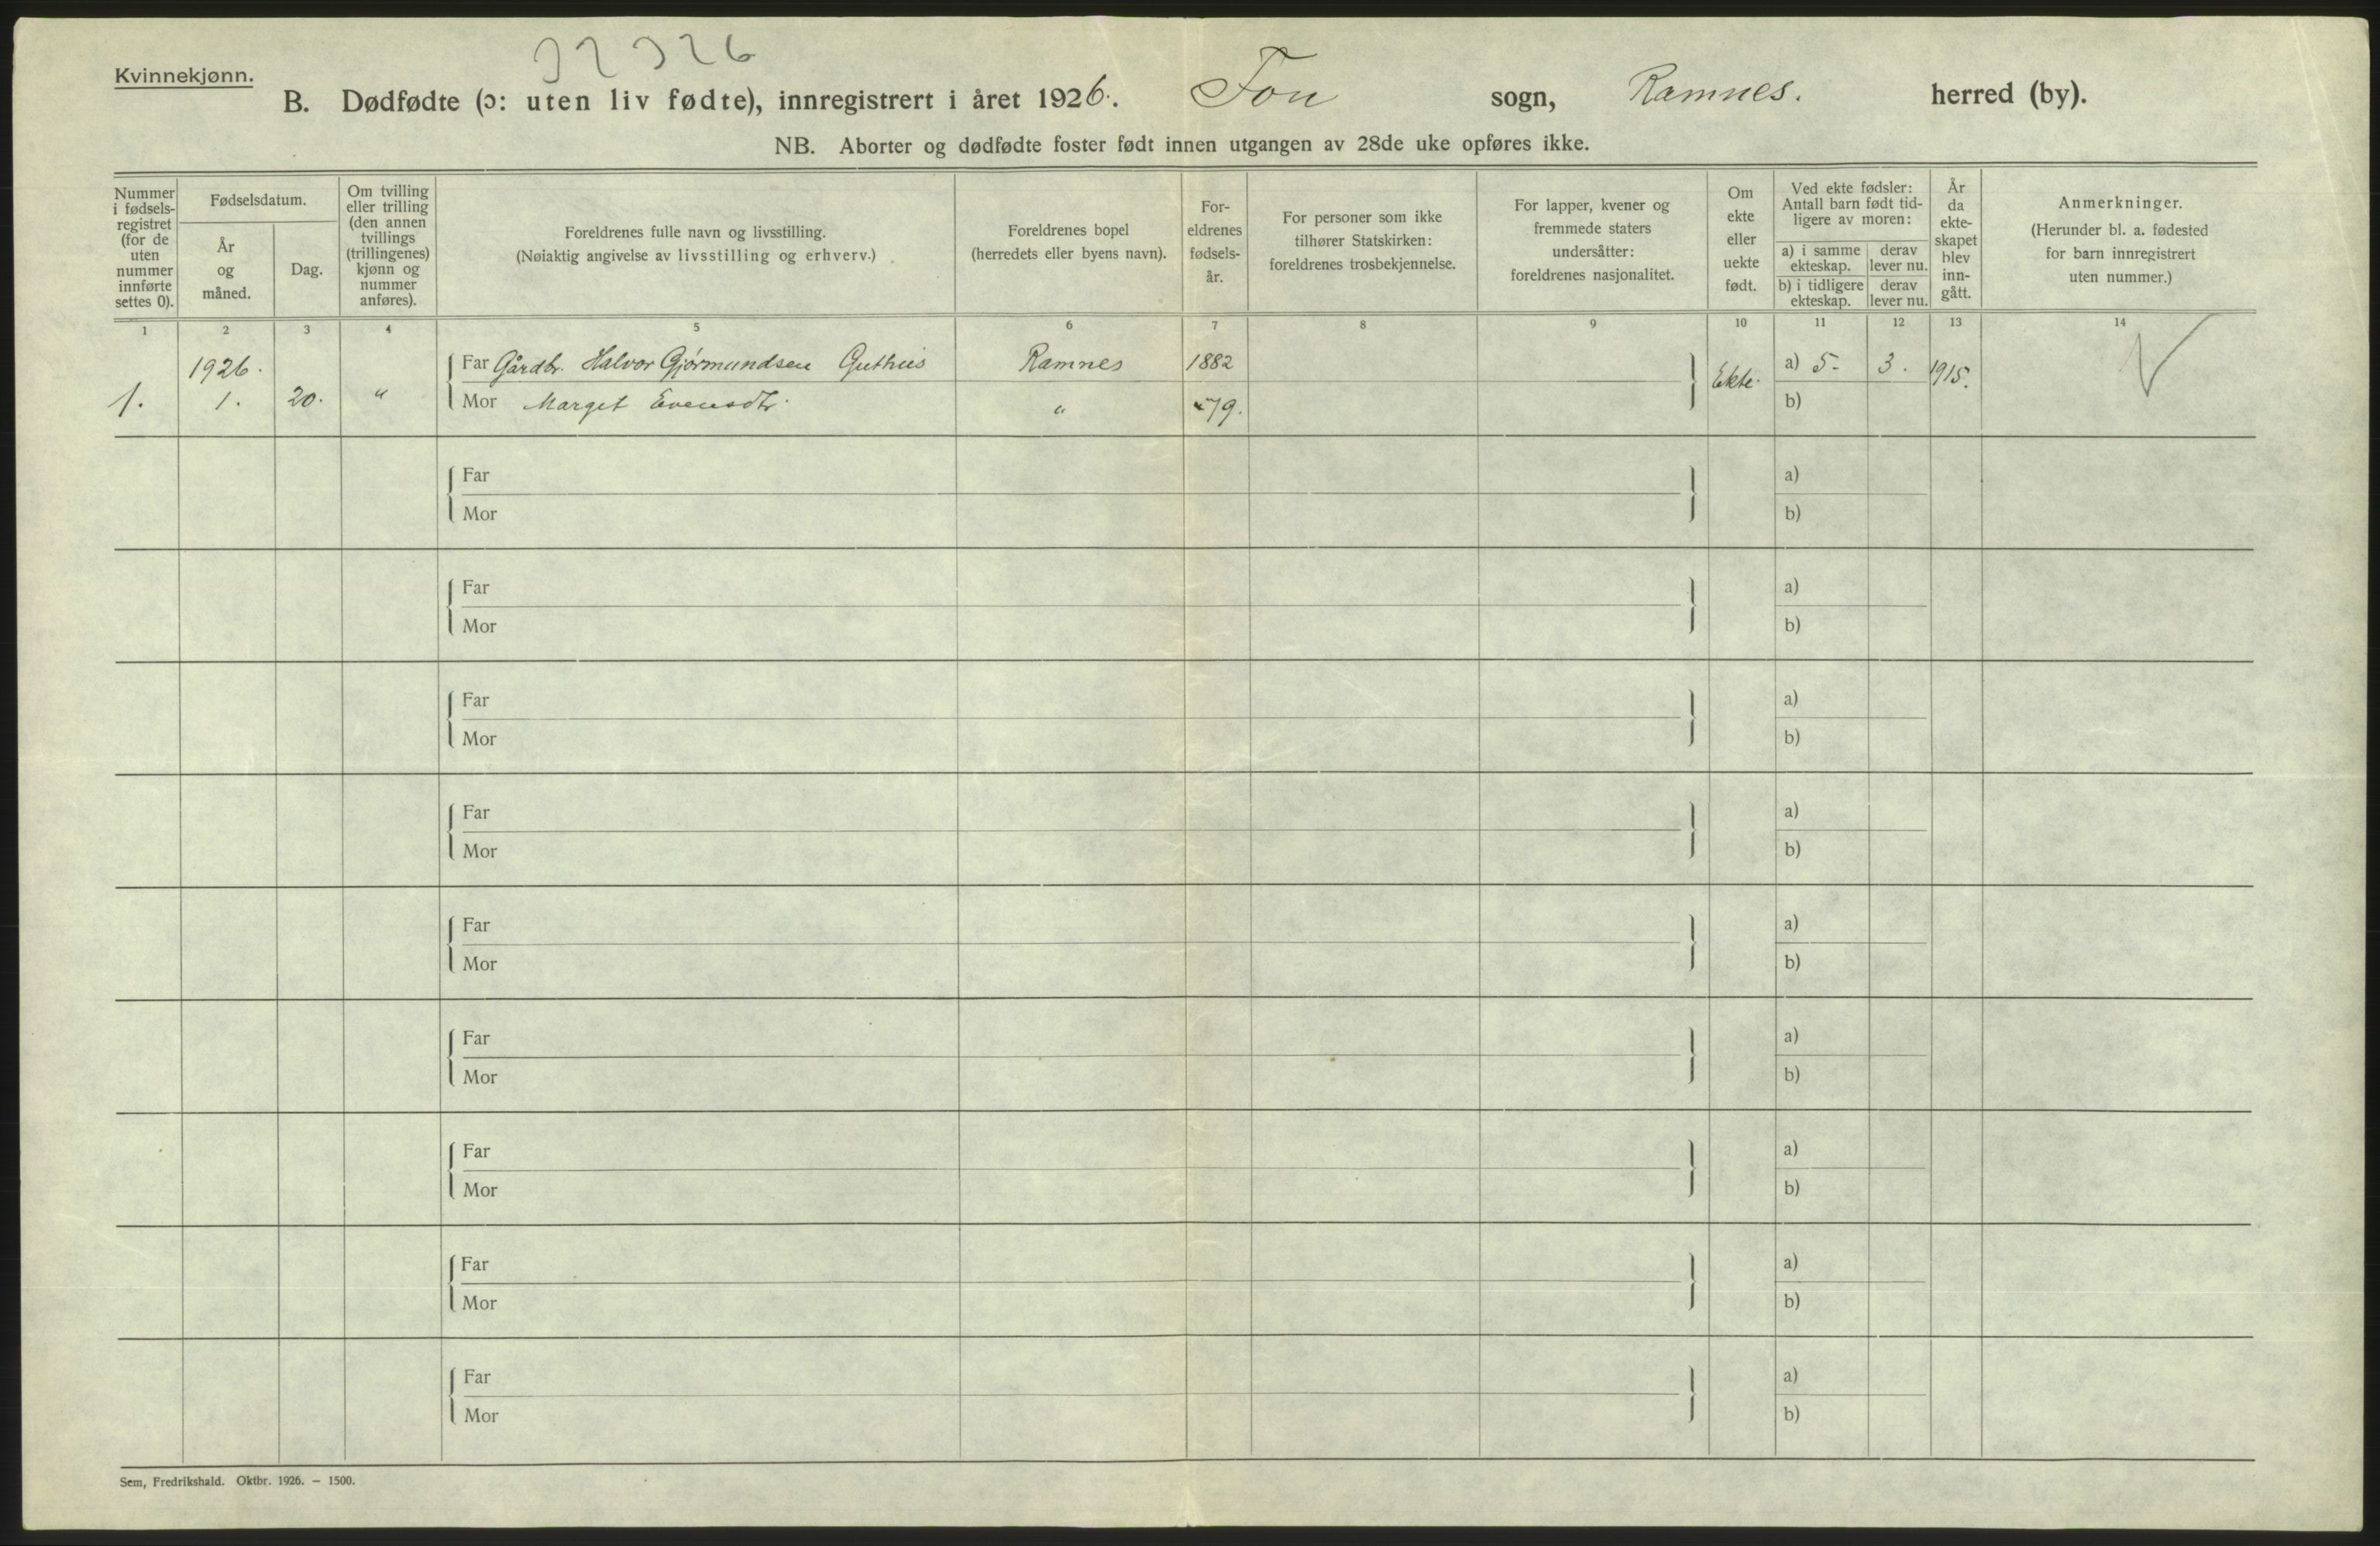 Kvinnekjønn.
B. Dødfødte (ɔ: uten liv fødte), innregistrert i året 1926. Fon sogn, Ramnes. herred (by).
NB. Aborter og dødfødte foster født innen utgangen av 28de uke opføres ikke.
Nummer i fødsels-registret (for de uten nummer innførte settes 0).
Fødselsdatum.
År og måned.
Dag.
Om tvilling eller trilling (den annen tvillings (trillingenes) kjønn og nummer anføres).
Foreldrenes fulle navn og livsstilling.
(Nøiaktig angivelse av livsstilling og erhverv.)
Foreldrenes bopel
(herredets eller byens navn).
For-eldrenes fødsels-år.
For personer som ikke tilhører Statskirken: foreldrenes trosbekjennelse.
For lapper, kvener og fremmede staters undersåtter: foreldrenes nasjonalitet.
Om ekte eller uekte født.
Ved ekte fødsler: Antall barn født tid-ligere av moren:
a) i samme ekteskap.
derav lever nu.
b) i tidligere ekteskap.
derav lever nu.
År da ekte-skapet blev inn-gått.
Anmerkninger.
(Herunder bl. a. fødested for barn innregistrert uten nummer.)
1 2 3 4 5 6 7 8 9 10 11 12 13 14
1926. Far Gårdbr. Halvor Gjørmundsen Guthus Ramnes 1882 Ekte. a) 5. 3. 1915.
1. 1. 20. " Mor Marget Evensdtr. " "79. b)
Far a)
Mor b)
Far a)
Mor b)
Far a)
Mor b)
Far a)
Mor b)
Far a)
Mor b)
Far a)
Mor b)
Far a)
Mor b)
Far a)
Mor b)
Far a)
Mor b)
Sem, Fredrikshald. Oktbr. 1926. – 1500.